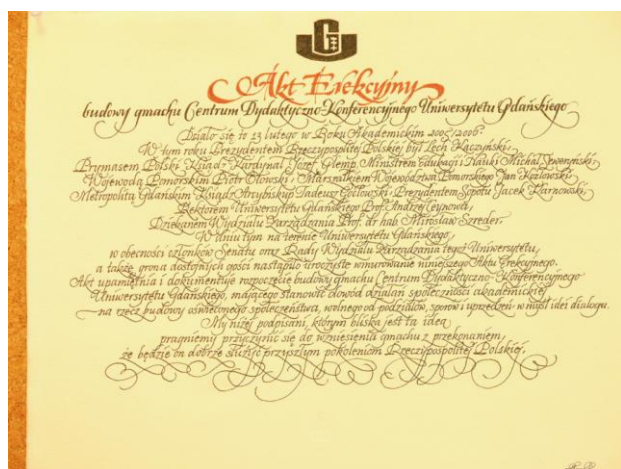 Akt Erekcyjny
budowy gmachu Centrum Dydaktyczno-Konferencyjnego Uniwersytetu Gdańskiego
Działo się to 13 lutego w Roku Akademickim 2005/2006.
W tym roku Prezydentem Rzeczypospolitej Polskiej był Lech Kaczyński,
Prymasem Polski Ksiądz Kardynał Józef Glemp, Ministrem Edukacji i Nauki Michał Seweryński,
Wojewodą Pomorskim Piotr Ołowski, Marszałkiem Województwa Pomorskiego Jan Kozłowski,
Metropolitą Gdańskim Ksiądz Arcybiskup Tadeusz Gocłowski, Prezydentem Sopotu Jacek Karnowski,
Rektorem Uniwersytetu Gdańskiego Prof. Andrzej Ceynowa,
Dziekanem Wydziału Zarządzania Prof. dr hab. Mirosław Szreder.
W dniu tym na terenie Uniwersytetu Gdańskiego,
w obecności członków Senatu oraz Rady Wydziału Zarządzania tegoż Uniwersytetu,
a także grona dostojnych gości nastąpiło uroczyste wmurowanie niniejszego Aktu Erekcyjnego.
Akt upamiętnia i dokumentuje rozpoczęcie budowy gmachu Centrum Dydaktyczno-Konferencyjnego
Uniwersytetu Gdańskiego, mającego stanowić dowód działań społeczności akademickiej
na rzecz budowy oświeconego społeczeństwa, wolnego od podziałów, sporów i uprzedzeń w myśl idei dialogu.
My niżej podpisani, którym bliska jest ta idea
pragniemy przyczynić się do wzniesienia gmachu z przekonaniem,
że będzie on dobrze służyć przyszłym pokoleniom Rzeczypospolitej Polskiej.